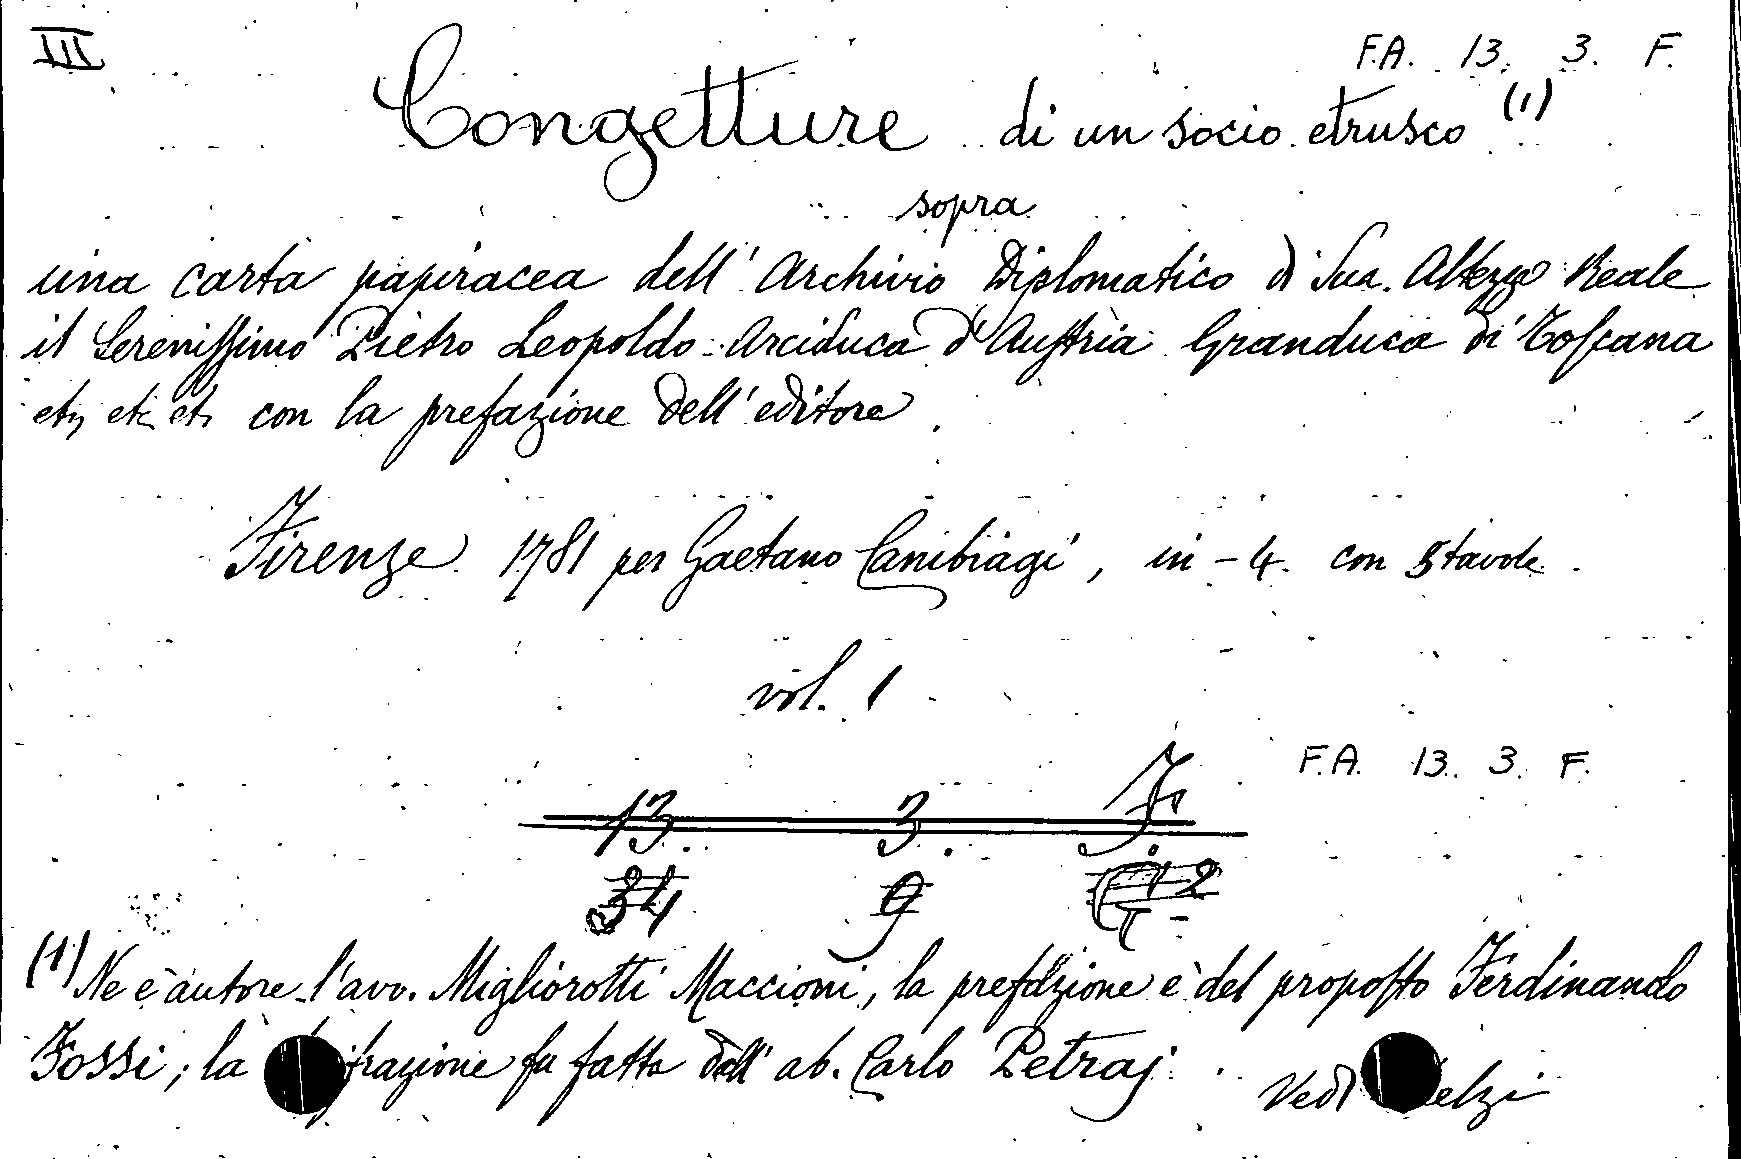 III
F.A. 13. 3. F.
Congetture di un socio etrusco (1)
sopra
una carta papiracea dell' Archivio Diplomatico di Sua. Altezza Reale
il Serenissimo Pietro Leopoldo Arciduca d'Austria Granduca di Toscana
etc etc etc con la prefazione dell'editore.
Firenze 1781 per Gaetano Cambiagi, in-4. con 5 tavole.
vol. 1
F.A. 13. 3. F.
13. 3. F.
34 9
(1) Ne è autore l'avv. Migliorotti Maccioni, la prefazione è del proposto Ferdinando
Fossi; la frazione fu fatta dall' ab. Carlo Petraj.
Vedi elzi